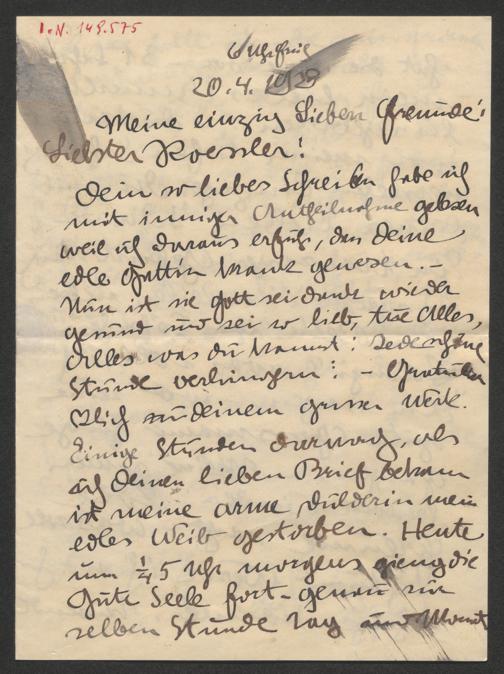 I.N. 149.575
6 Uhr früh
20.4. 1939
Meine einzig Lieben Freunde!
Liebster Roessler!
Dein so liebes Schreiben habe ich
mit inniger Antheilnahme gelesen
weil ich daraus erfuhr, das deine
edle Gattin krank gewesen. –
Nun ist sie gott sei dank wieder
gesund und sei so lieb, tue Alles,
Alles was du kannst: Jede schöne
Stunde verlängern! – Gratulier
Dlich zu deinem grossen Werk.
Einige Stunden darnach, als
ich deinen lieben Brief bekam
ist meine arme Dulderin mein
edles Weib gestorben. Heute
um ¼ 5 Uhr morgens gieng die
Gute Seele fort – genau zur
selben Stunde Tag und Monat